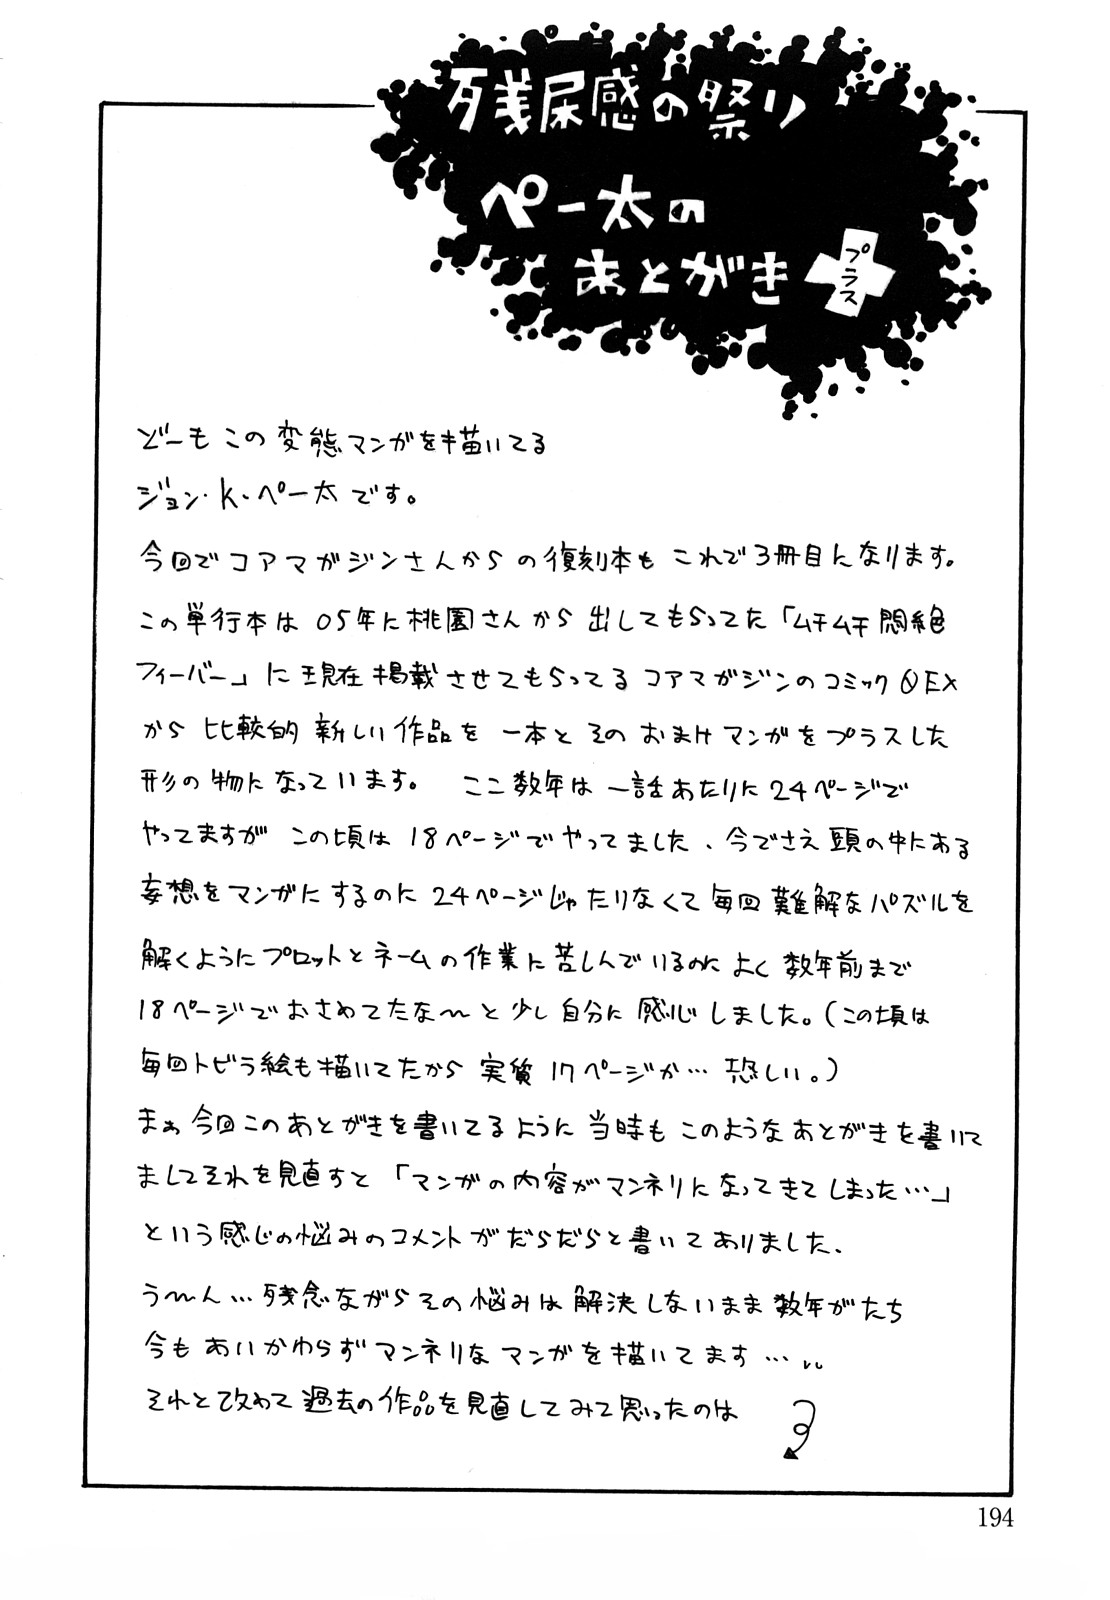 残尿感の祭り
ペー太の
あとがき
プラス
どーもこの変態マンガを描いてる
ジョン・K・ペー太です。
今回でコアマガジンさんからの復刻本もこれで3冊目になります。
この単行本は05年に桃園さんから出してもらってた「ムチムチ悶絶
フィーバー」に現在掲載させてもらってるコアマガジンのコミック0EX
から比較的新しい作品を一本とそのおまけマンガをプラスした
形の物になっています。 ここ数年は一話あたりに24ページで
やってますがこの頃は18ページでやってました、今でさえ頭の中にある
妄想をマンガにするのに24ページじゃたりなくて毎回難解なパズルを
解くようにプロットとネームの作業に苦しんでいるのによく数年前まで
18ページでおさめてたな〜と少し自分に感心しました。(この頃は
毎回トビラ絵も描いてたから実質17ページか…恐しい。)
まぁ今回このあとがきを書いてるように当時もこのようなあとがきを書いて
ましてそれを見直すと「マンガの内容がマンネリになってきてしまった…」
という感じの悩みのコメントがだらだらと書いてありました、
う〜ん…残念ながらその悩みは解決しないまま数年がたち
今もあいかわらずマンネリなマンガを描いてます…､､
それと改めて過去の作品を見直してみて思ったのは
194